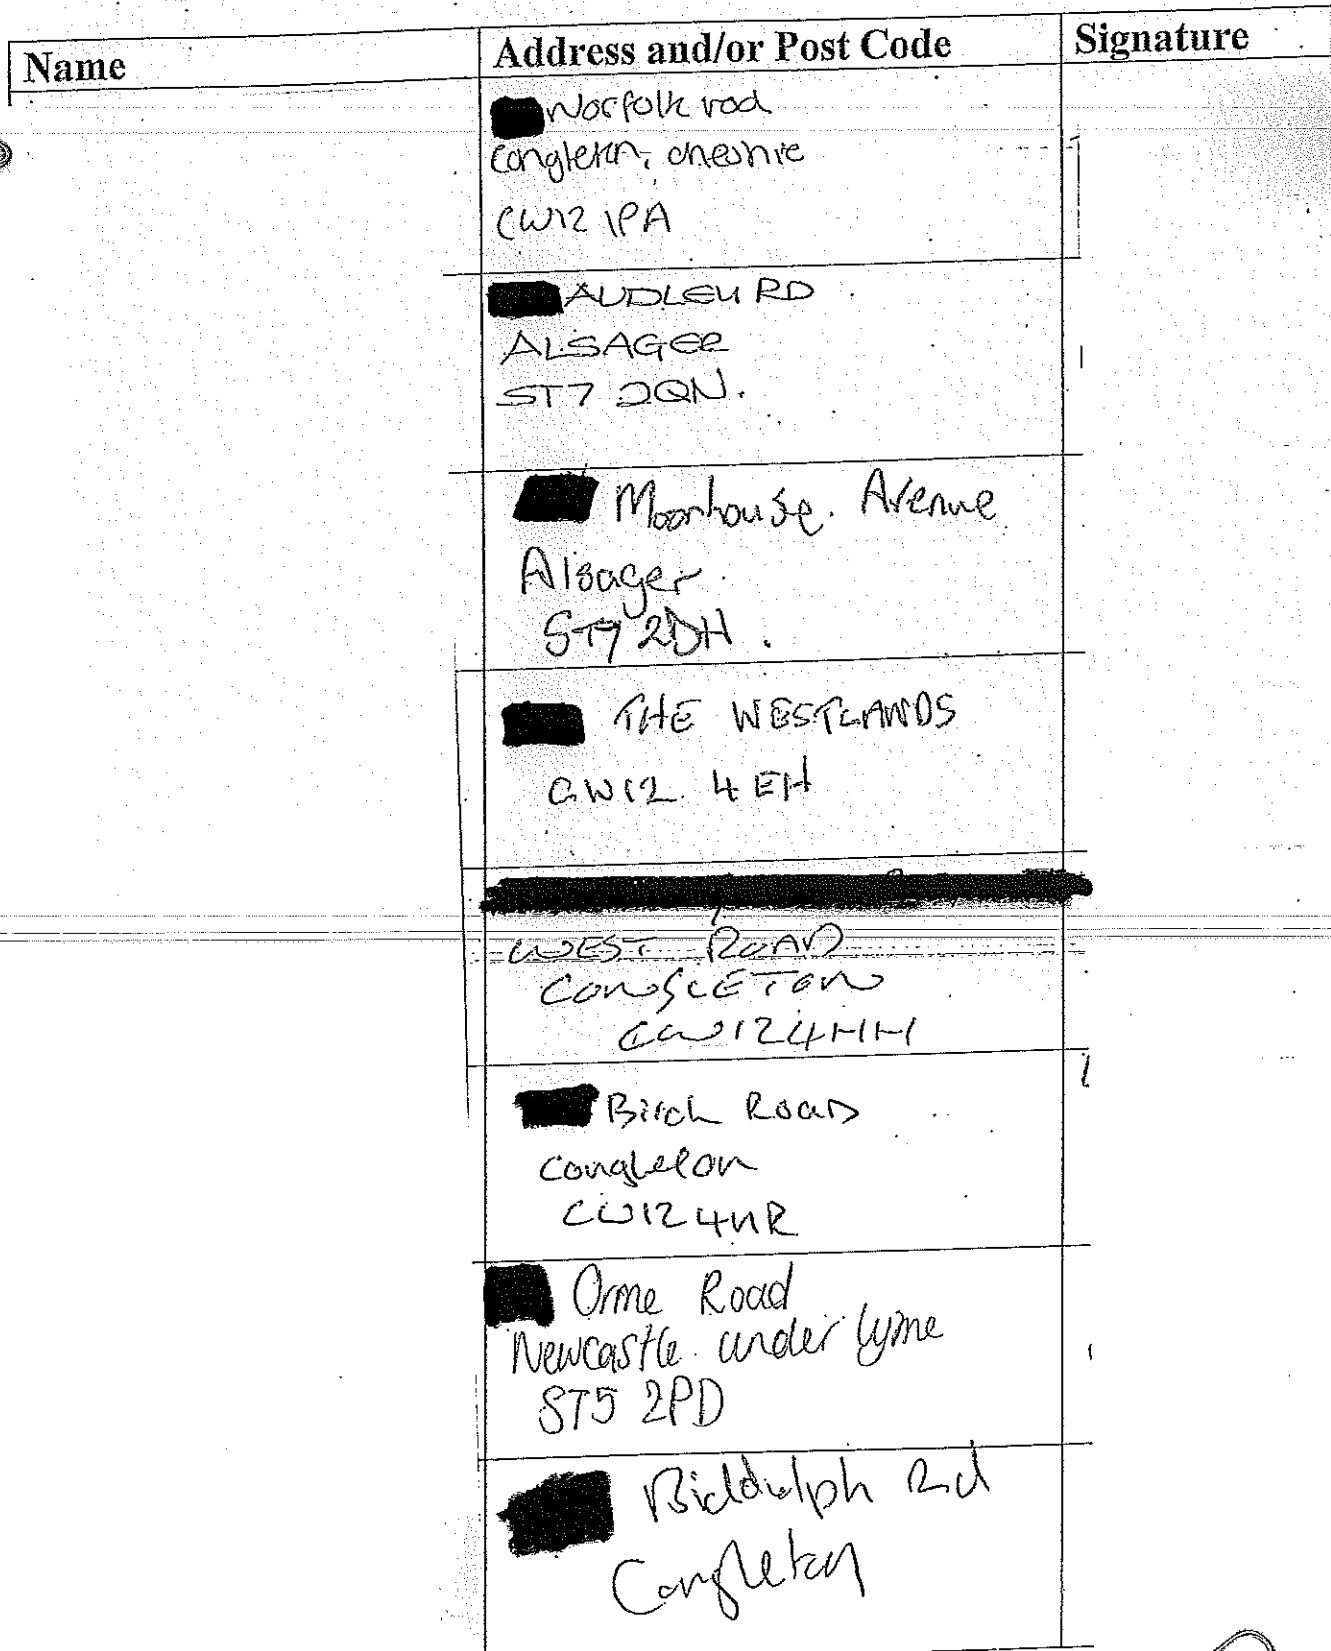 Name Address and/or Post Code Signature
Norfolk rod
Congleton, cheshire
CW12 1PA
AUDLEY RD
ALSAGER
ST7 2QN.
Moorhouse. Avenue
Alsager
ST7 2DH.
THE WESTLANDS
CW12 4EH
WEST ROAD
CONGLETON
CW12 4HH
Birch Road
Congleton
CW12 4NR
Orme Road
Newcastle under lyme
ST5 2PD
Biddulph Rd
Congleton